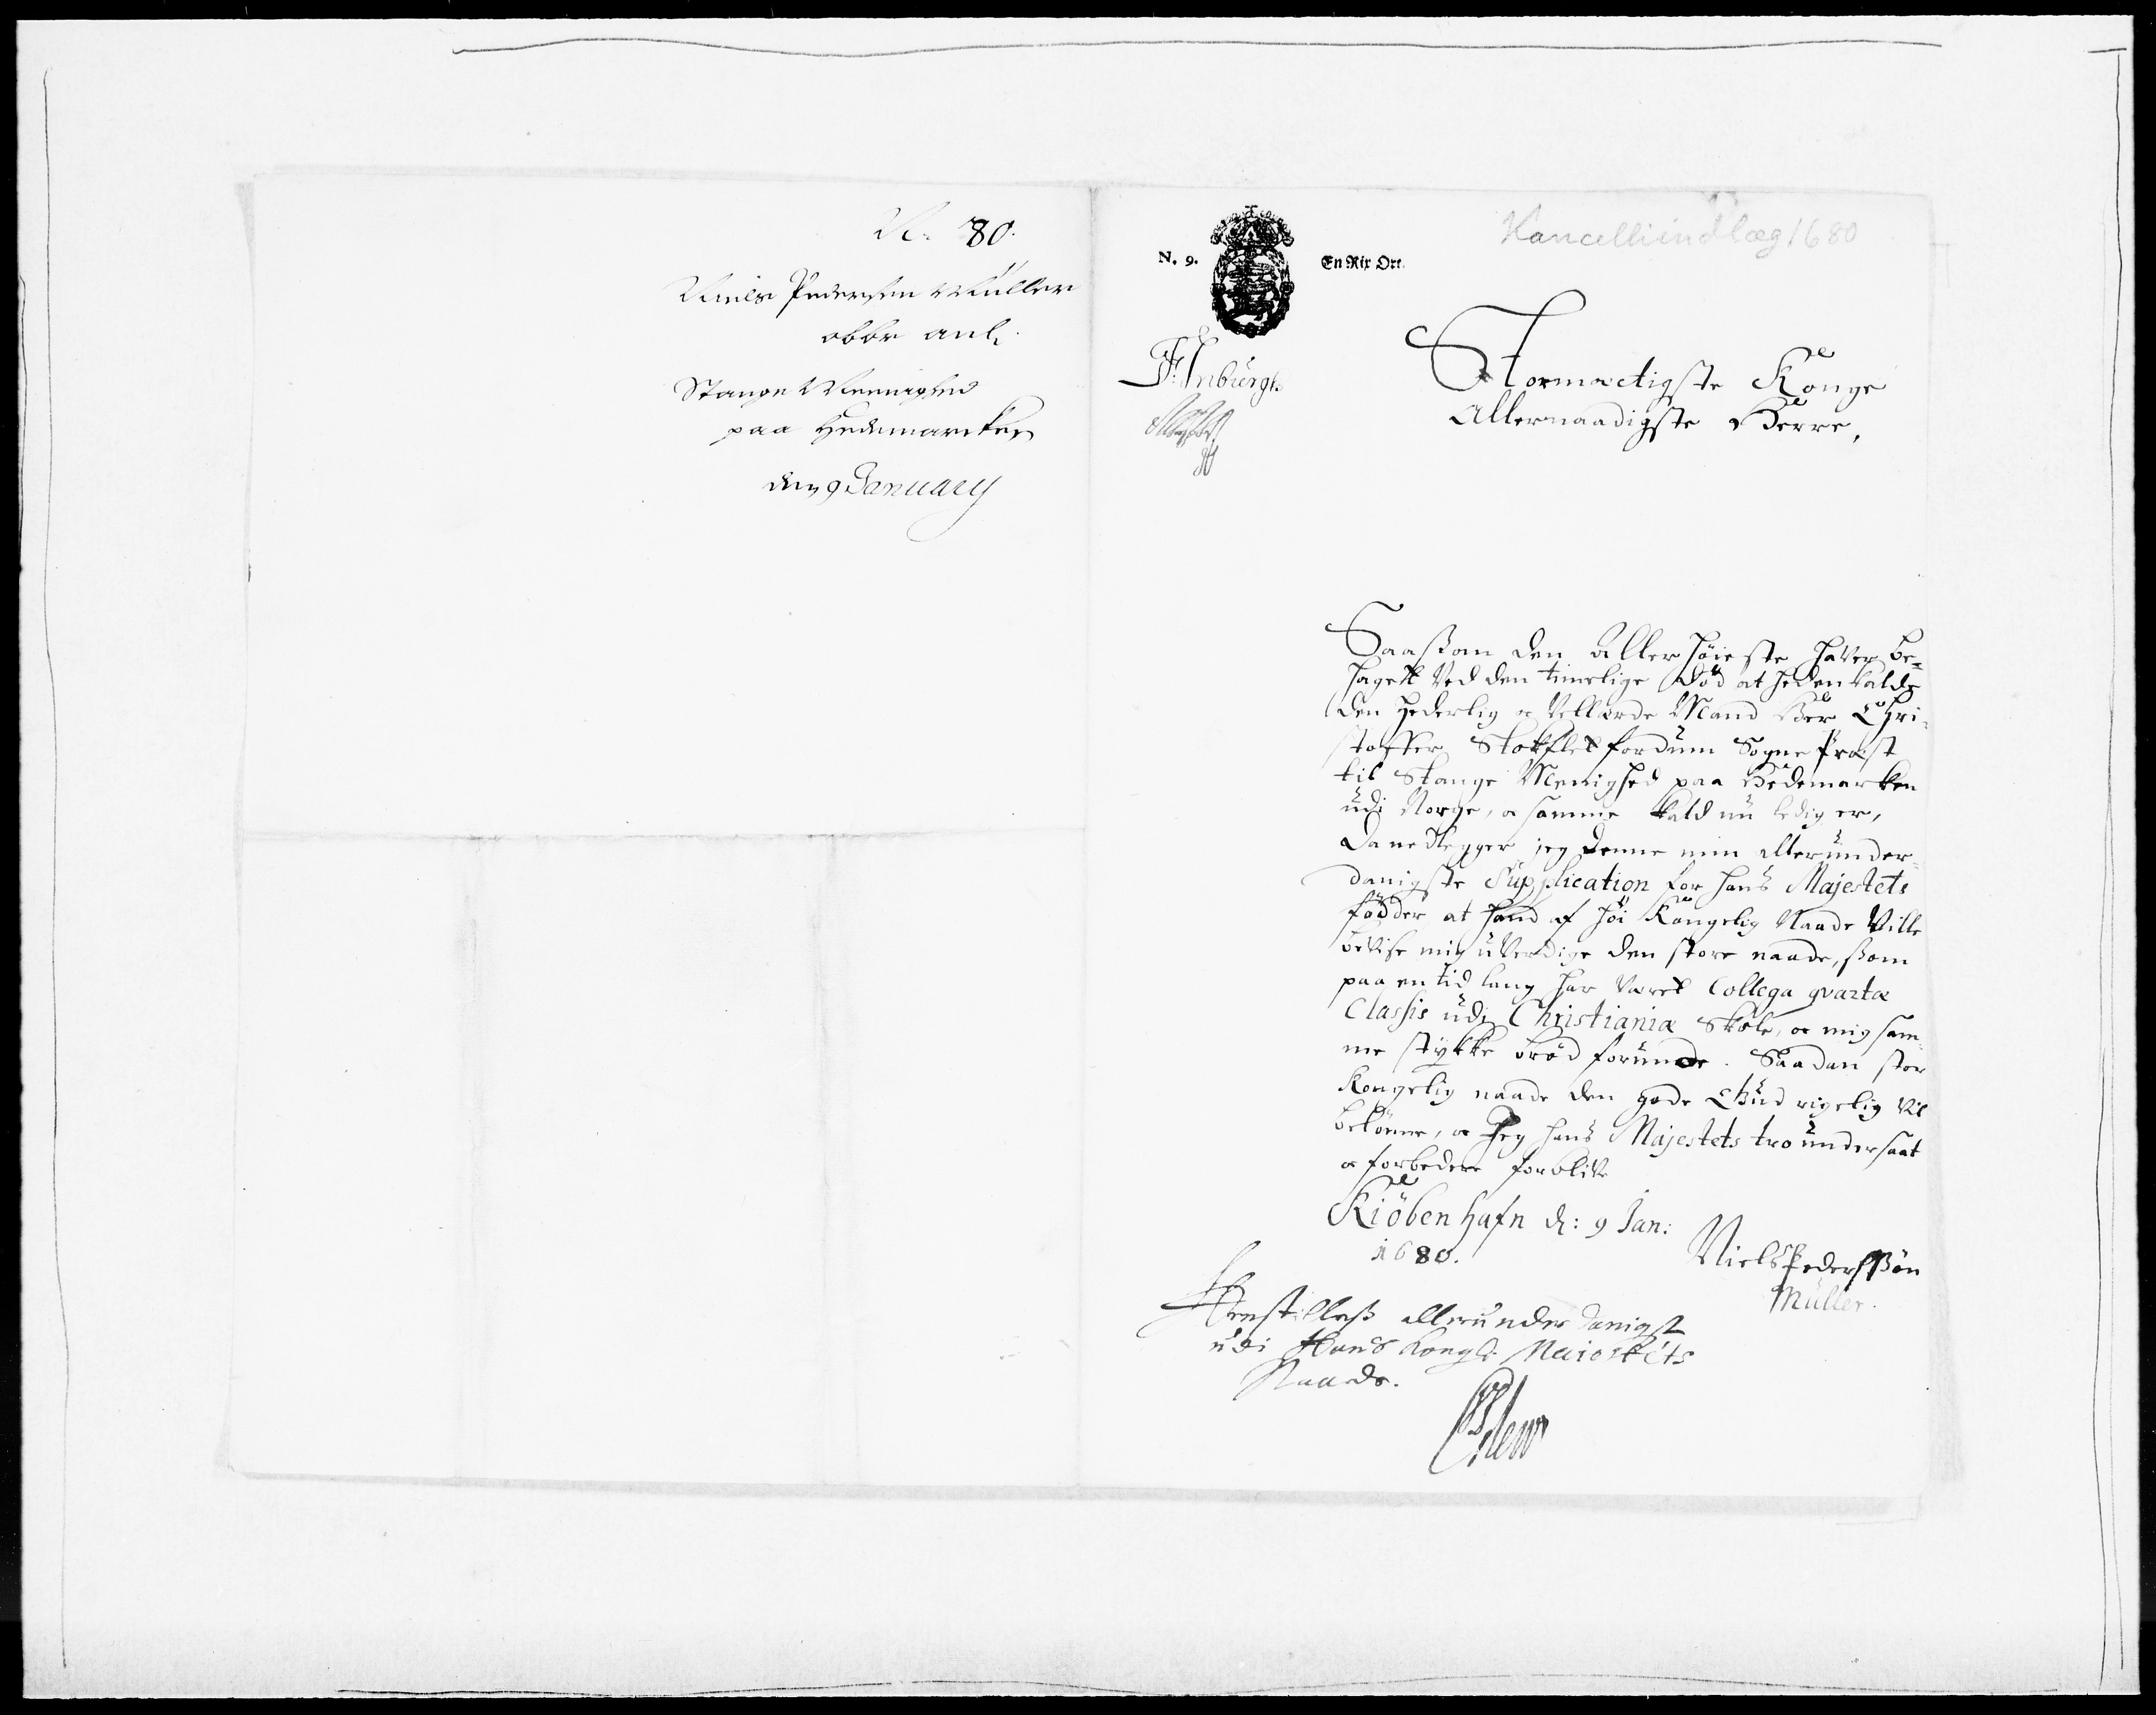 No. 80.
Niels Pedersen Müller
obbr anl.
Stange Menighed
paa Hedemarcken
den 9 January
N. 9.
En Rix Ort.
Kancelliindlæg 1680
F. Inburgs
Stormectigste Konge
Allernaadigste Herre,
Saasom den Allerhöieste haver be-
haget Ved den timelige död at heden kalde
den Hederlig oc Vellærde Mand Her Chri-
stoffer Stokflet fordum Sogne Præst
til Stange Menighed paa Hedemarken
udi Norge, oc samme kald nu ledig er,
Da nedlegger jeg denne min allerunder-
danigste Supplication for hans Majestets
födder at hand af höi Kongelig Naade Ville
bevise mig uverdige den store naade, ssom
paa en tid lang har været Collega qvartæ
Classis udi Christianiæ Skole, oc mig sam-
me stykke bröd forunde. Saadan stor
Kongelig naade den gode Gud rigelig Vil
belönne, oc Jeg hans Majestets tro undersaat
oc forbedere forblive
Kiöbenhafn d: 9 Jan:
1680.
Niels Pederssön
Müller.
Henstilless allerunderdanigst
udi Hans Kongl: Maiestets
Naade.